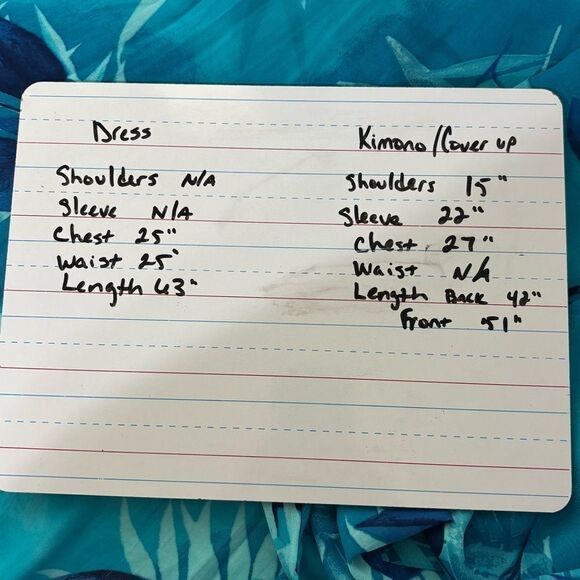 Dress
Shoulders N/A
Sleeve N/A
Chest 25"
Waist 25"
Length 43"
Kimono/Cover up
Shoulders 15"
Sleeve 22"
Chest 27"
Waist N/A
Length Back 42"
Front 51"